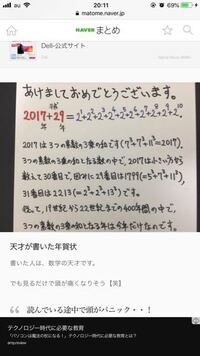 au 20:11 69%
matome.naver.jp
NAVER まとめ
Dell-公式サイト
あけましておめでとうございます。
2017+29=2¹+2²+2³+2⁴+2⁵+2⁶+2⁷+2⁸+2⁹+2¹⁰
年 年
2017は3つの素数の3乗の和です(7³+7³+11³=2017)。
3つの素数の3乗の和となる数の中で、2017は小さい方から
数えて30番目で、因みに29番目は1799(=5³+7³+11³)
31番目は2213(=2³+2³+13³)です。
従って、19世紀から22世紀までの400年間の中で、
3つの素数の3乗の和となる年は今年だけなのです。
天才が書いた年賀状
書いた人は、数学の天才です。
でも見るだけで頭が痛くなりそう【笑】
読んでいる途中で頭がパニック・・!
テクノロジー時代に必要な教育
「パソコンは魔法の杖になる！」テクノロジー時代に必要な教育とは？